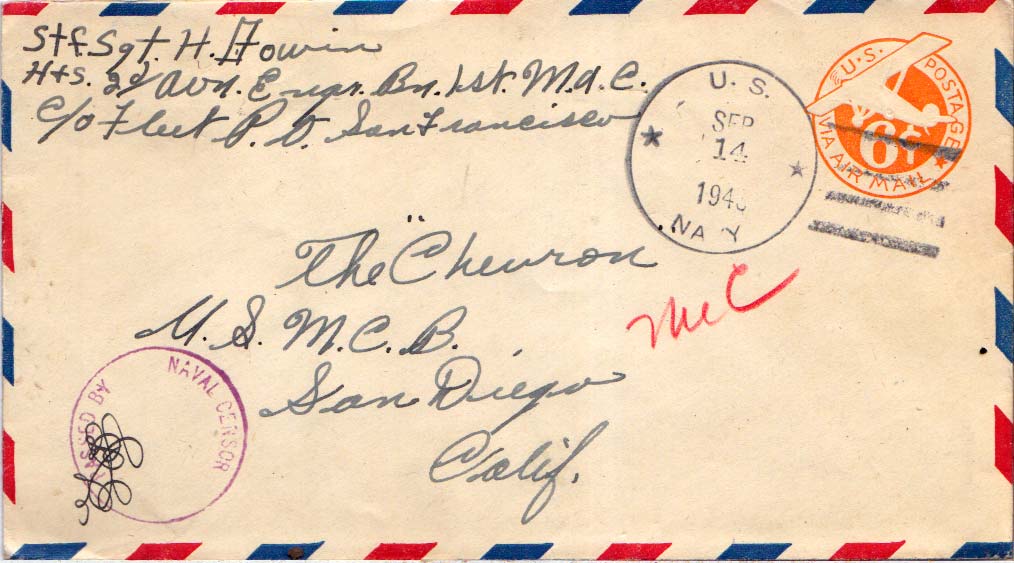 Stf. Sgt. H.
Hts. 2d Avn. Engr. Bn. 1st. M.A.C.
C/o Fleet P.O. San Francisco
U.S.
SEP
14
NAVY
U.S. POSTAGE
6¢
VIA AIR MAIL
The "Chevron
U.S.M.C.B.
San Diego
Calif.
McC
PASSED BY
NAVAL CENSOR